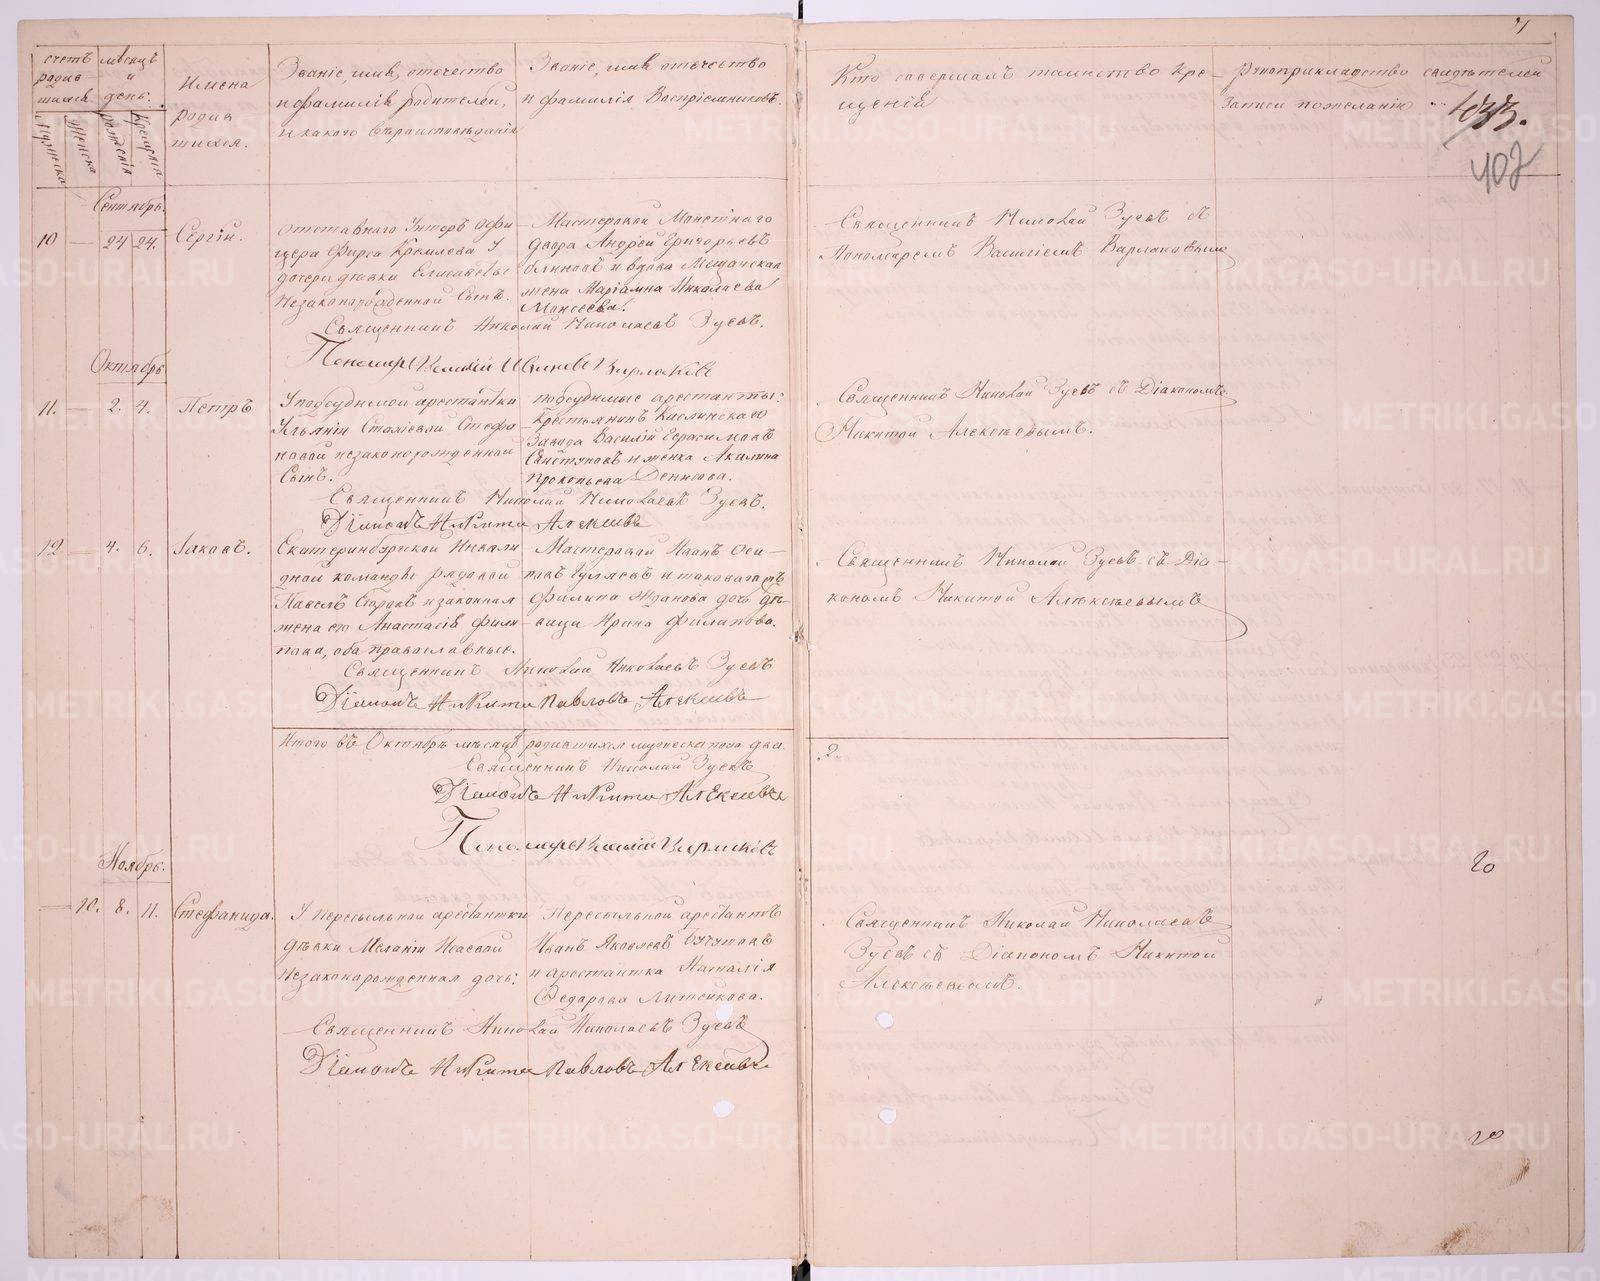 счетъ родив-шихся
мѣсяцъ и день.
Имена родив шихся.
Званіе, имя, отечество
и фамилія родителей,
и какого вѣроисповѣданія
Званіе, имя отечество
и фамилія Воспріемниковъ.
Кто совершалъ таинство Кре-
щенія
Рукоприкладство свидѣтелей
записи по желанію
Мужеска
Женска
рожденія
Крещенія
433.
402
Сентябрь.
10 — 24 24. Сергій.
отставнаго Унтеръ Офи-
цера Фирса Кремлева у
дочери дѣвки Елисаветы
Незаконорожденной Сынъ.
Мастеровой Монетнаго
двора Андрей Григорьевъ
Блиновъ и вдова Мещанская
жена Маріамна Николаева
Моисеева.
Священникъ Николай Зуевъ съ
Пономаремъ Василіемъ Варлаковымъ
Священникъ Николай Николаевъ Зуевъ.
Пономарь Василій Ивановъ Варлаковъ
Октябрь
11. — 2. 4. Петръ
У подсудимой арестантки
Ульяніи
незаконорожденной
Сынъ.
подсудимые арестанты:
Крестьянинъ Каслинскаго
Завода Василій Герасимовъ
и женка Акилина
Прокопьева
Священникъ Николай Зуевъ съ Діакономъ
Никитой Алексѣевымъ.
Священникъ Николай Николаевъ Зуевъ.
Діаконъ Никита Алексѣевъ
12 — 4. 6. Іаковъ.
Екатеринбургской Инвали
дной команды рядовой
Павелъ и законная
жена его Анастасія Фили
пова, оба православные.
Мастеровой Иванъ Оси-
повъ Гуляевъ и таковагожъ
Филипа Жданова дочь дѣ-
вица Ирина Филипова.
Священникъ Николай Зуевъ съ Діа-
кономъ Никитой Алексѣевымъ
Священникъ Николай Николаевъ Зуевъ
Діаконъ Никита Павловъ Алексѣевъ
Итого въ Октябрѣ мѣсяцѣ родившихся мужеска пола два.
2.
Священникъ Николай Зуевъ
Діаконъ Никита Алексѣевъ
Пономарь Василій Варлаковъ
20
Ноябрь.
— 10. 8. 11. Стефанида.
У Пересыльной арестантки
дѣвки Меланіи Исаевой
Незаконорожденная дочь:
Пересыльной арестантъ
Иванъ Яковлевъ
и арестантка Наталія
Федарова
Священникъ Николай Николаевъ
Зуевъ съ Діакономъ Никитой
Алексѣевымъ.
Священникъ Николай Николаевъ Зуевъ
Діаконъ Никита Павловъ Алексѣевъ
20
METRIKI.GASO-URAL.RU